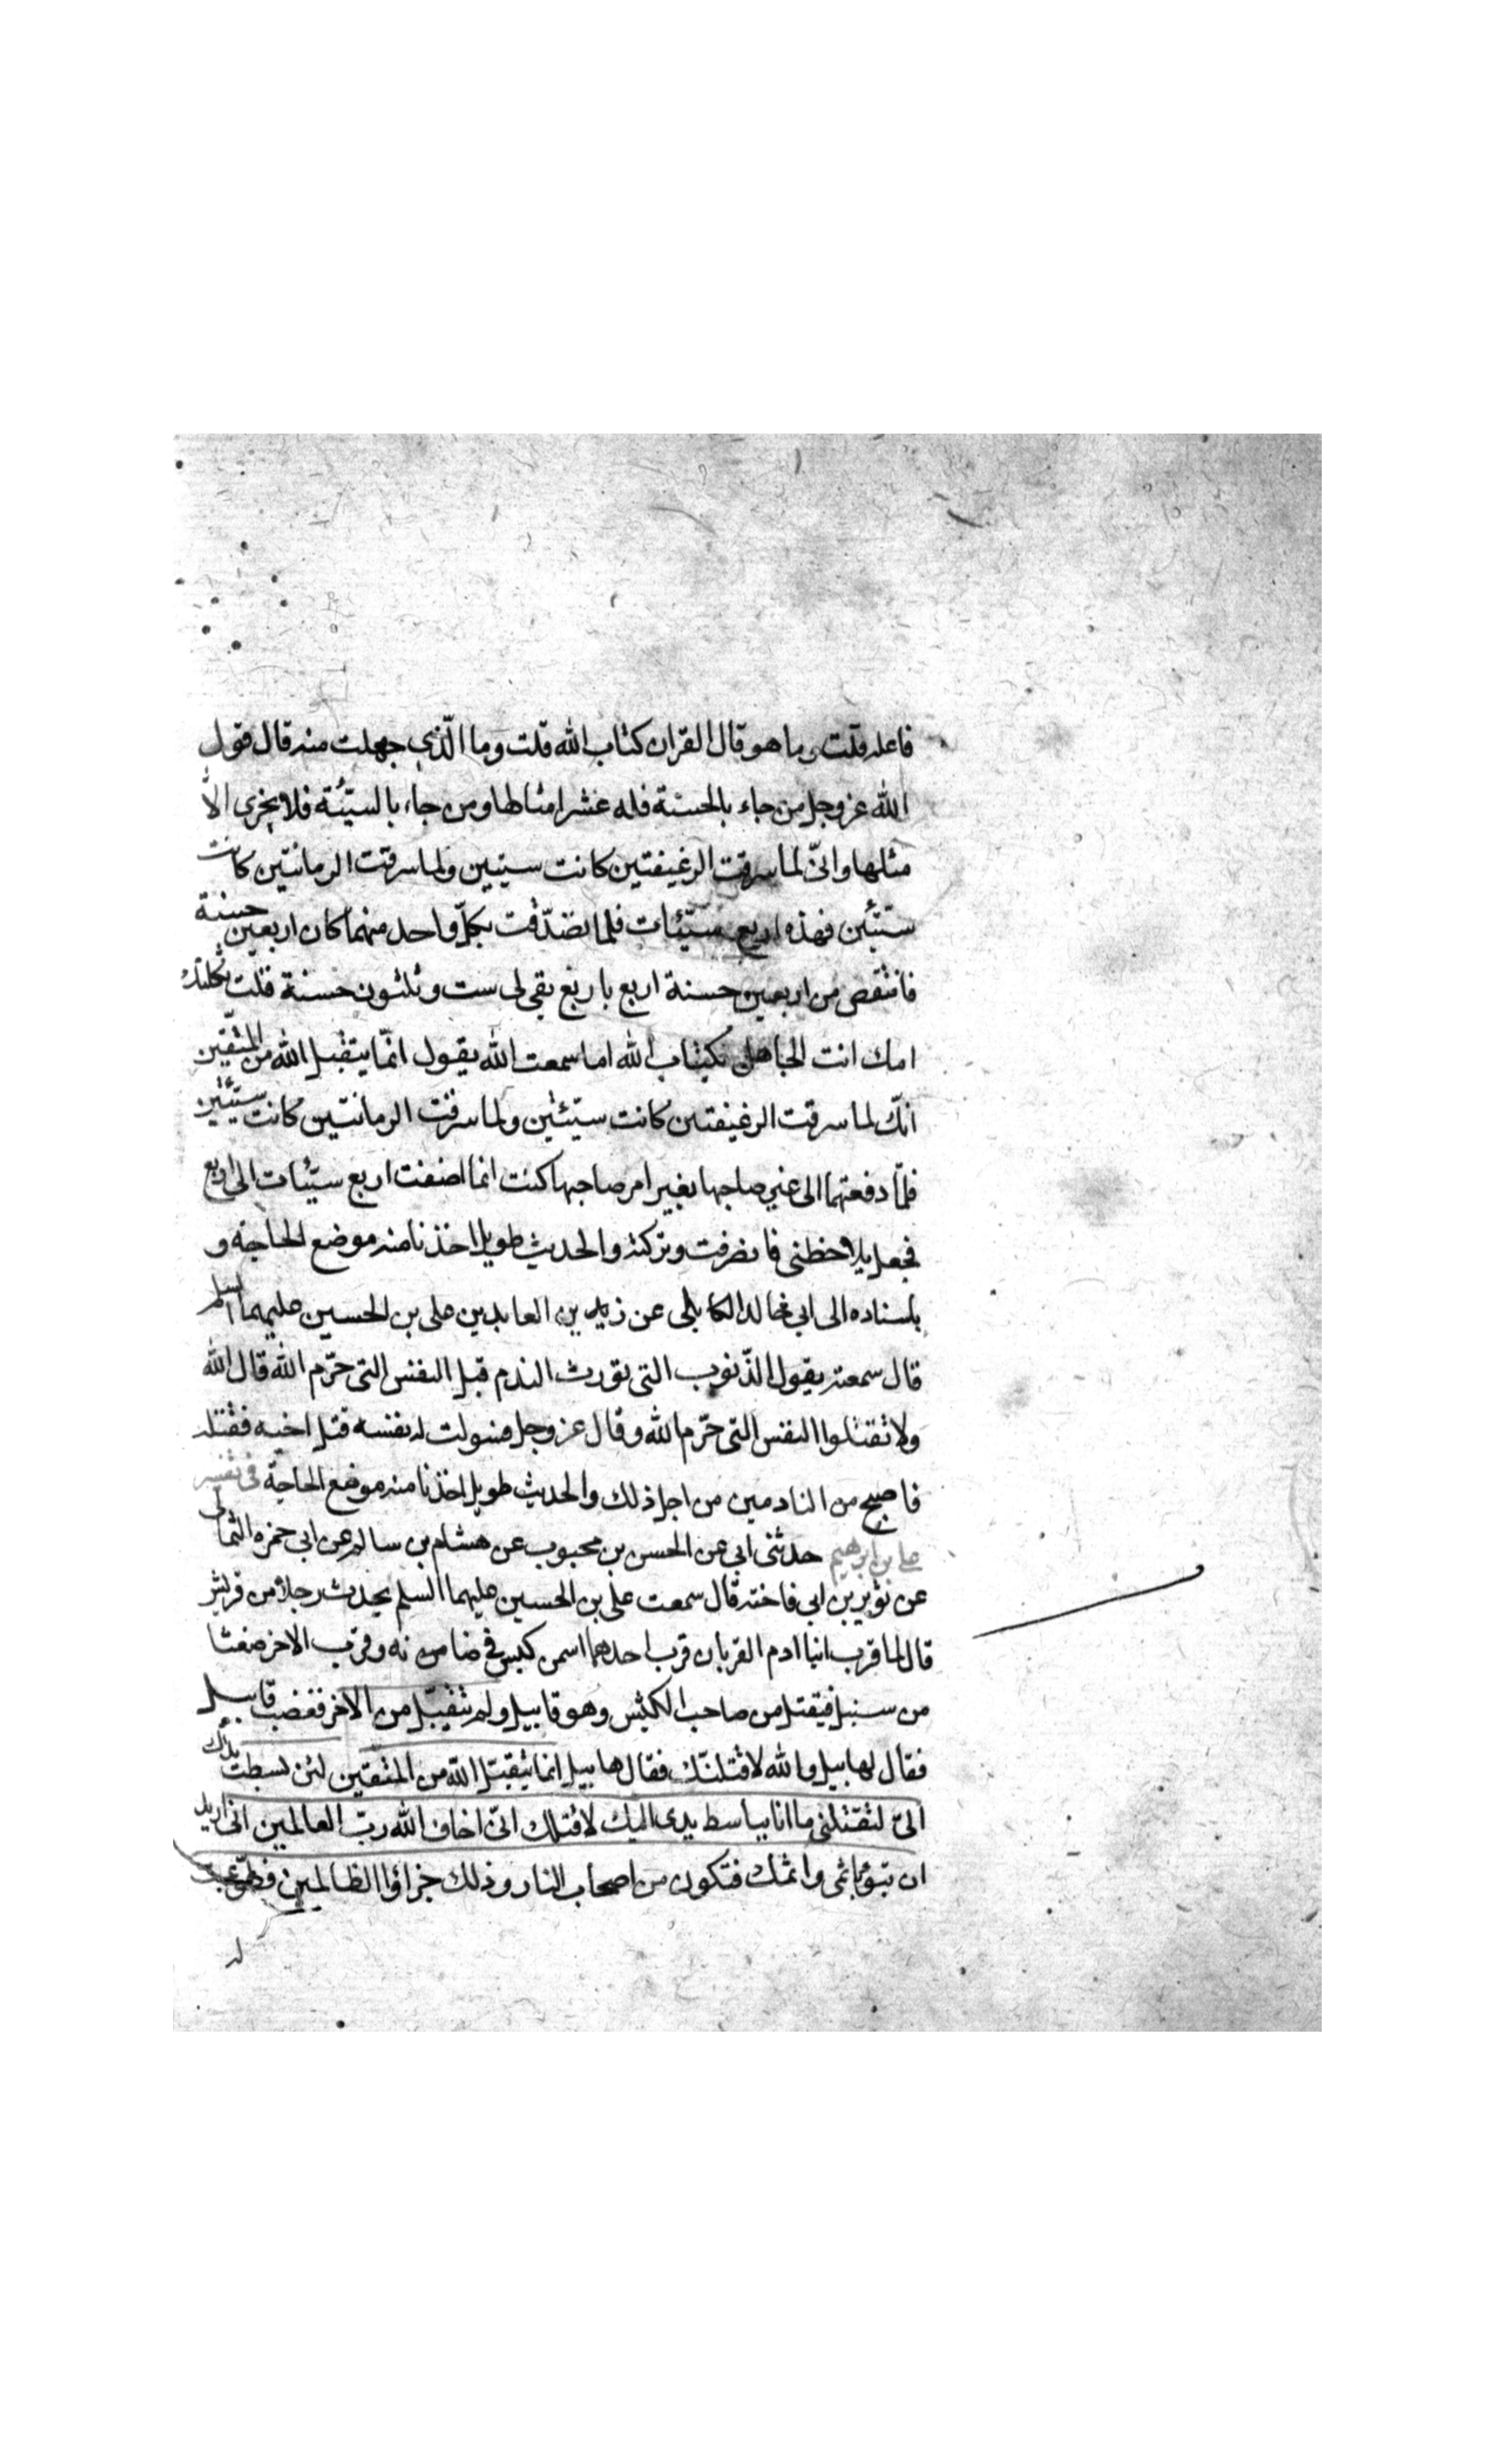 فاعله قلت وما هو قال القران كتاب الله قلت وما الّذي جهلت منه قال قول
الله عز وجل من جاء بالحسنة فله عشر امثالها ومن جاء بالسيّئة فلا يجزى الاّ
مثلها وانّى لما سرقت الرغيفتين كانت سيتين ولما سرقت الرمانتين كانت
ستيّئن فهذه اربع سيّئات فلما تصدّقت بكلّ واحد منهما كان اربعين حسنة
فانتقص من اربعين حسنة اربع باربع بقى لى ست وثلثون حسنة قلت ثكلتك
امك انت الجاهل بكتاب الله اما سمعت الله يقول انّما يتقبل الله من المتّقين
انّك لما سرقت الرغيفتين كانت سيّئتين ولما سرقت الرمانتين كانت سيّئتين
فلمّا دفعتهما الى غير صاحبها بغير امر صاحبها كنت انما اضفت اربع سيّئات الى اربع
فجعل يلاحظنى فانصرفت وتركته والحديث طويل اخذنا منه موضع الحاجة و
باسناده الى ابى خالد الكابلى عن زين العابدين على بن الحسين عليهما السلم
قال سمعته يقول الذّنوب التى تورث الندم قبل النفس التى حرّم الله قال الله
ولا تقتلوا النفس التى حرّم الله وقال عز وجل فسولت له نفسه قتل اخيه فقتله
فاصبح من النادمين من اجل ذلك والحديث طويل اخذنا منه موضع الحاجة فى تفسير
على بن ابرهيم حدثنى ابى عن الحسن بن محبوب عن هشام بن سالم عن ابى حمزه الثمالى
عن ثوير بن ابى فاخته قال سمعت على بن الحسين عليهما السلم يحدث رجلا من قريش
قال لما قرب ابنا ادم القربان قرب احدهما اسمن كبش فى ضامن نه وقرب الاخر ضغثا
من سنبل فيقتل من صاحب الكبش وهو قابيل ولم تتقبّل من الاخر فغضب قابيل
فقال لهابيل والله لاقتلنّك فقال هابيل انما يتقبّل الله من المتقين لئن بسطت يدك
الىّ لتقتلنى ما انا بباسط يدى اليك لاقتلك انّى اخاف الله ربّ العالمين انى اريد
ان تبوء باثمى واثمك فتكون من اصحاب النار وذلك جزاؤا الظالمين فطوعت
له